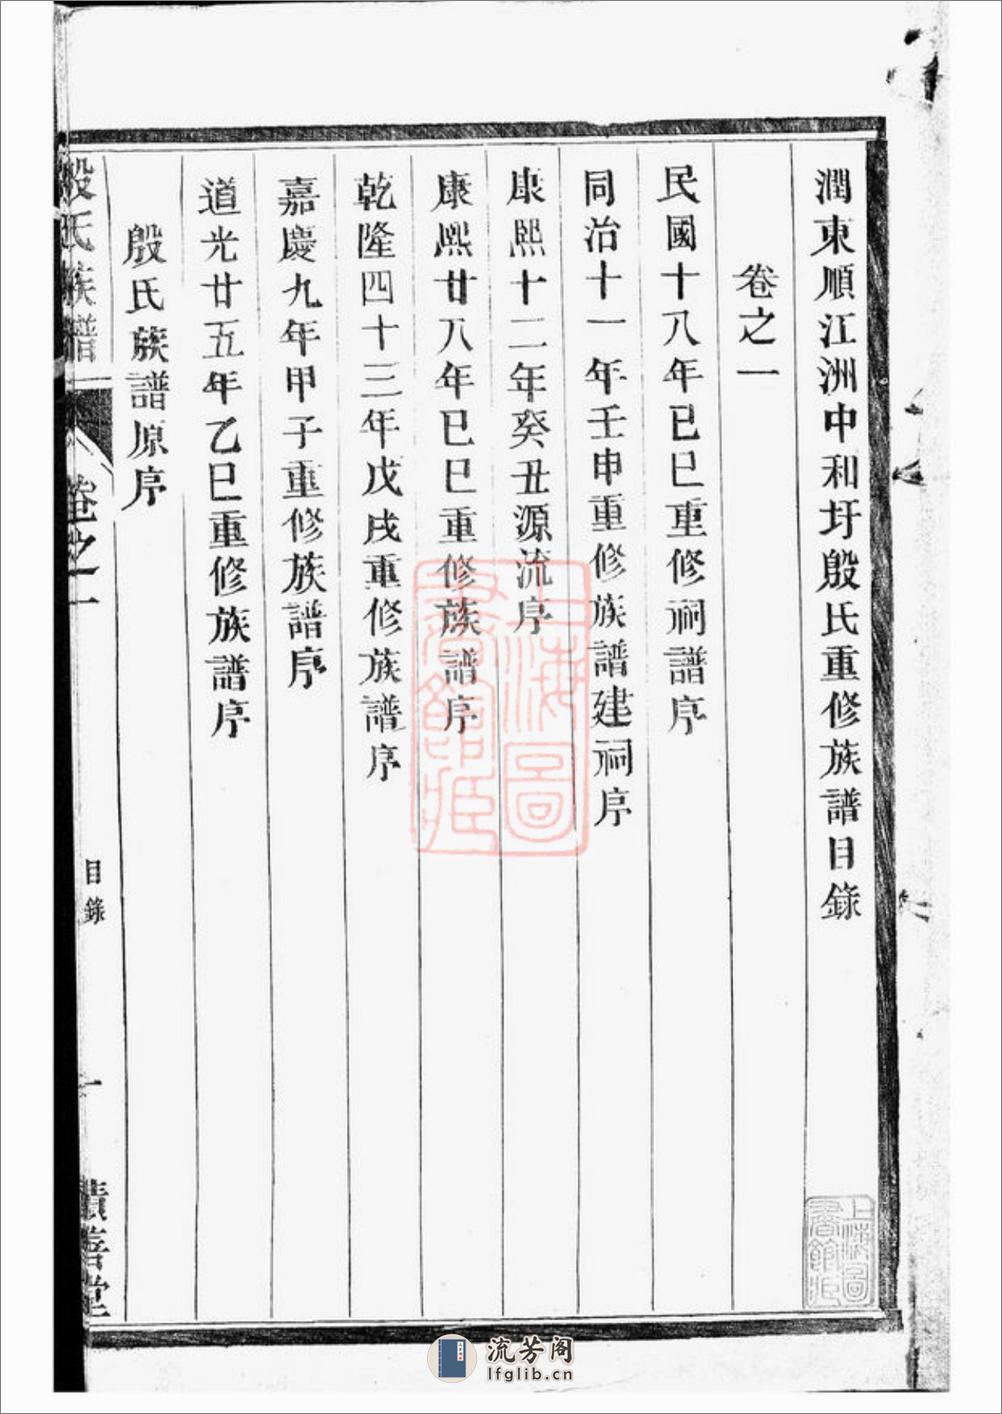 潤東順江洲中和圩殷氏重修族譜目錄
卷之一
民國十八年己巳重修祠譜序
同治十一年壬申重修族譜建祠序
康熙十二年癸丑源流序
康熙廿八年己巳重修族譜序
乾隆四十三年戊戌重修族譜序
嘉慶九年甲子重修族譜序
道光廿五年乙巳重修族譜序
殷氏族譜原序
殷氏族譜
卷之一
目錄
一
積善堂
上海圖書館藏
上海圖書館藏
流芳阁
lfglib.cn